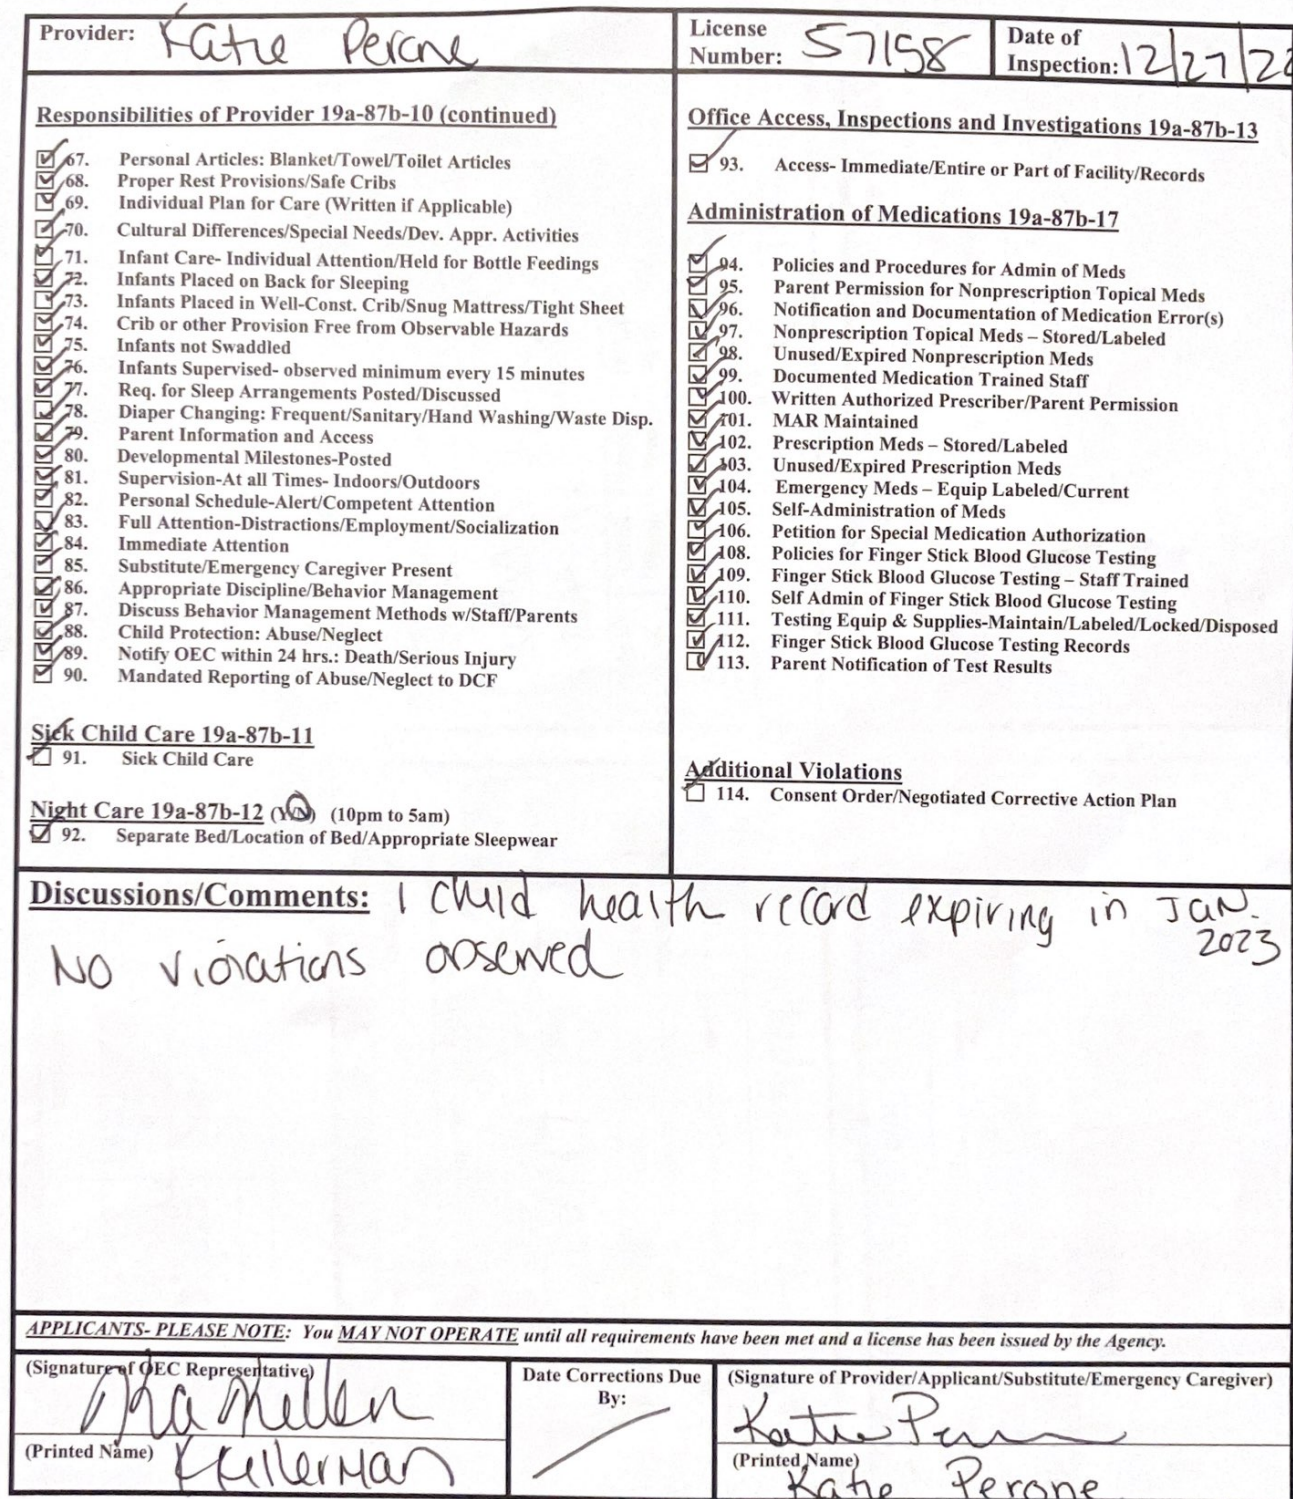 Provider: Katie Perone
License Number: 57158
Date of Inspection: 12/27/22
Responsibilities of Provider 19a-87b-10 (continued)
67. Personal Articles: Blanket/Towel/Toilet Articles
68. Proper Rest Provisions/Safe Cribs
69. Individual Plan for Care (Written if Applicable)
70. Cultural Differences/Special Needs/Dev. Appr. Activities
71. Infant Care- Individual Attention/Held for Bottle Feedings
72. Infants Placed on Back for Sleeping
73. Infants Placed in Well-Const. Crib/Snug Mattress/Tight Sheet
74. Crib or other Provision Free from Observable Hazards
75. Infants not Swaddled
76. Infants Supervised- observed minimum every 15 minutes
77. Req. for Sleep Arrangements Posted/Discussed
78. Diaper Changing: Frequent/Sanitary/Hand Washing/Waste Disp.
79. Parent Information and Access
80. Developmental Milestones-Posted
81. Supervision-At all Times- Indoors/Outdoors
82. Personal Schedule-Alert/Competent Attention
83. Full Attention-Distractions/Employment/Socialization
84. Immediate Attention
85. Substitute/Emergency Caregiver Present
86. Appropriate Discipline/Behavior Management
87. Discuss Behavior Management Methods w/Staff/Parents
88. Child Protection: Abuse/Neglect
89. Notify OEC within 24 hrs.: Death/Serious Injury
90. Mandated Reporting of Abuse/Neglect to DCF
Sick Child Care 19a-87b-11
91. Sick Child Care
Night Care 19a-87b-12 (Y/N) (10pm to 5am)
92. Separate Bed/Location of Bed/Appropriate Sleepwear
Office Access, Inspections and Investigations 19a-87b-13
93. Access- Immediate/Entire or Part of Facility/Records
Administration of Medications 19a-87b-17
94. Policies and Procedures for Admin of Meds
95. Parent Permission for Nonprescription Topical Meds
96. Notification and Documentation of Medication Error(s)
97. Nonprescription Topical Meds – Stored/Labeled
98. Unused/Expired Nonprescription Meds
99. Documented Medication Trained Staff
100. Written Authorized Prescriber/Parent Permission
101. MAR Maintained
102. Prescription Meds – Stored/Labeled
103. Unused/Expired Prescription Meds
104. Emergency Meds – Equip Labeled/Current
105. Self-Administration of Meds
106. Petition for Special Medication Authorization
108. Policies for Finger Stick Blood Glucose Testing
109. Finger Stick Blood Glucose Testing – Staff Trained
110. Self Admin of Finger Stick Blood Glucose Testing
111. Testing Equip & Supplies-Maintain/Labeled/Locked/Disposed
112. Finger Stick Blood Glucose Testing Records
113. Parent Notification of Test Results
Additional Violations
114. Consent Order/Negotiated Corrective Action Plan
Discussions/Comments: 1 child health record expiring in JAN.
2023
No violations observed
APPLICANTS- PLEASE NOTE: You MAY NOT OPERATE until all requirements have been met and a license has been issued by the Agency.
(Signature of OEC Representative)
(Printed Name) Kellerman
Date Corrections Due
By:
(Signature of Provider/Applicant/Substitute/Emergency Caregiver)
Katie
(Printed Name)
Katie Perone